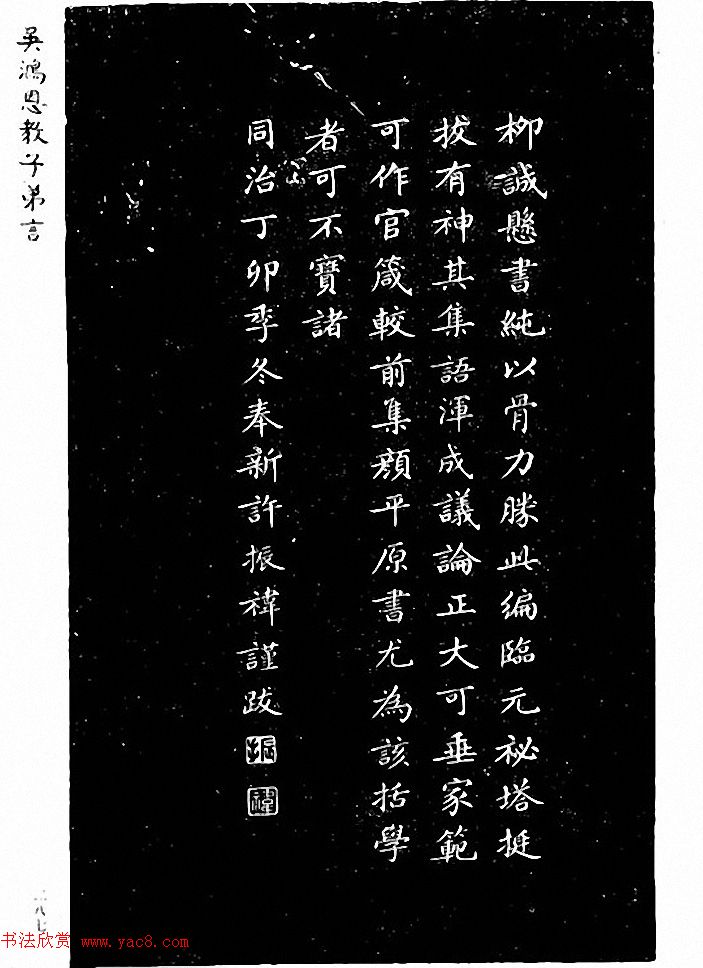 吳鴻恩教子弟言
柳誠懸書純以骨力勝此編臨元祕塔挺
拔有神其集語渾成議論正大可垂家範
可作官箴較前集顏平原書尤為該括學
者可不寶諸
同治丁卯季冬奉新許振禕謹跋
振
禕
一八七
书法欣赏 www.yac8.com